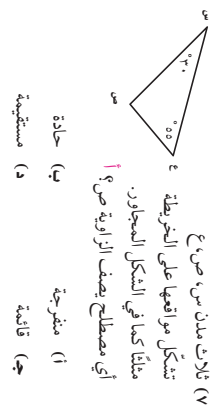 ٧) ثلاث مدن س، ص، ع
تشكّل مواقعها على الخريطة
مثلثًا كما في الشكل المجاور.
أي مصطلح يصف الزاوية ص؟ أ
أ) منفرجة
ب) حادة
ج) قائمة
د) مستقيمة
س
°٣٠
°٥٥
ع
ص